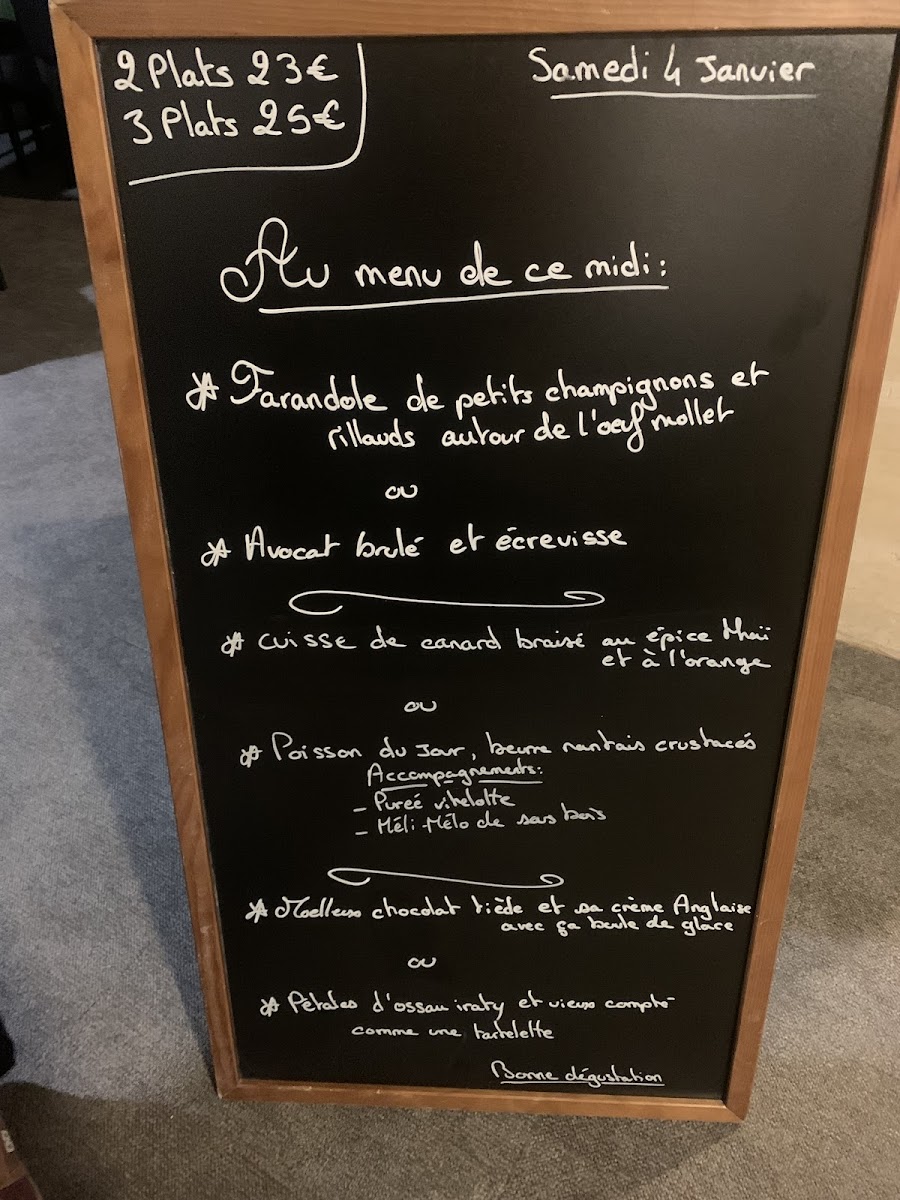 2 Plats 23€
3 Plats 25€
Samedi 4 Janvier
Au menu de ce midi :
Farandole de petits champignons et
rillauds autour de l'oeuf mollet
ou
Avocat brulé et écrevisse
cuisse de canard braisé au épice Thaï
et à l'orange
ou
Poisson du Jour, beurre nantais crustacés
Accompagnements :
- Pureé vitelotte
- Méli-Mélo de sous bois
Moelleux chocolat tiède et sa crème Anglaise
avec ça boule de glace
ou
Pétales d'ossau iraty et vieux compté
comme une tartelette
Bonne dégustation